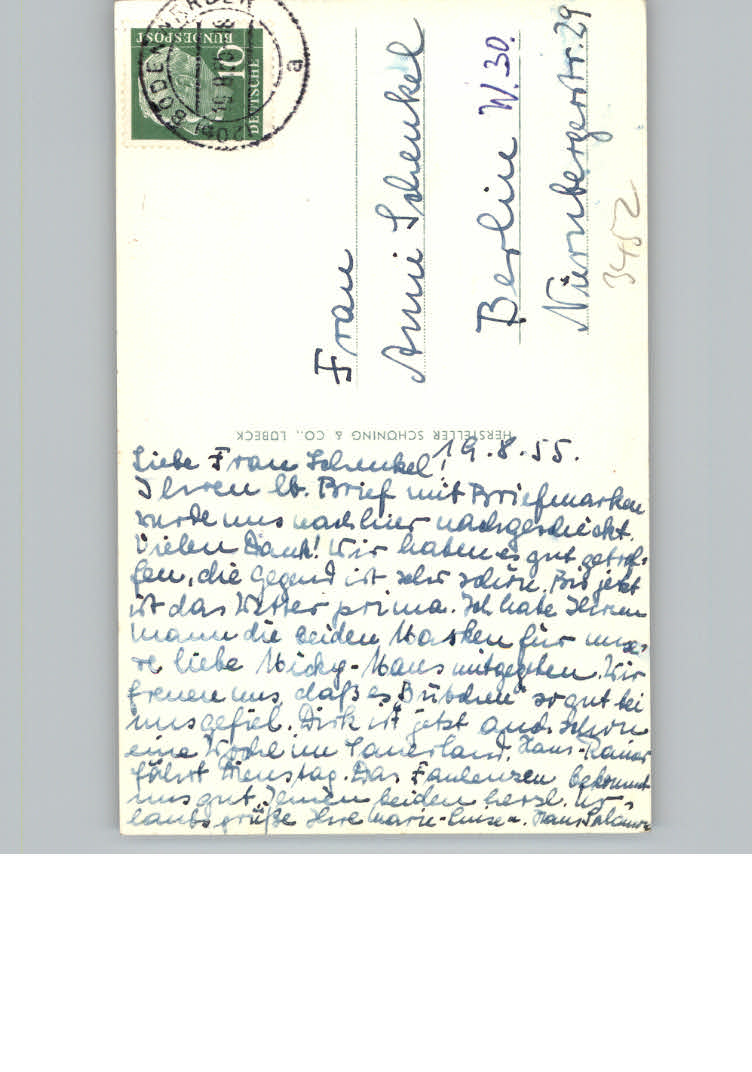 DEUTSCHE
BUNDESPOST
10
BODENWERDER
a
Frau
Anni Schenkel
Berlin W. 30.
Nürnbergerstr. 29
3452
HERSTELLER SCHÖNING & CO., LÜBECK
19.8.55.
Liebe Frau Schenkel!
Ihren lb. Brief mit Briefmarken
wurde uns nach hier nachgeschickt.
Vielen Dank! Wir haben es gut getrof-
fen, die Gegend ist sehr schön. Bis jetzt
ist das Wetter prima. Ich habe Ihrem
Mann die beiden Marken für unse-
re liebe Micky-Maus mitgegeben. Wir
freuen uns, daß es "Bübchen" so gut bei
uns gefiel. Dirk ist jetzt auch schon
eine Woche im Sauerland. Hans-Rainer
fährt Dienstag. Das Faulenzen bekommt
uns gut. Ihnen beiden herzl. Ur-
laubsgrüße Ihre Marie-Luise u. Hans